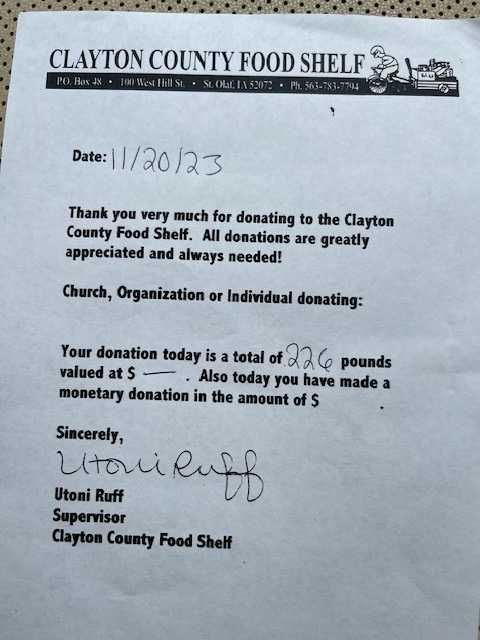 CLAYTON COUNTY FOOD SHELF
P.O. Box 48 • 100 West Hill St. • St. Olaf, IA 52072 • Ph. 563-783-7794
Date: 11/20/23
Thank you very much for donating to the Clayton
County Food Shelf. All donations are greatly
appreciated and always needed!
Church, Organization or Individual donating:
Your donation today is a total of 226 pounds
valued at $ — . Also today you have made a
monetary donation in the amount of $ .
Sincerely,
Utoni Ruff
Utoni Ruff
Supervisor
Clayton County Food Shelf